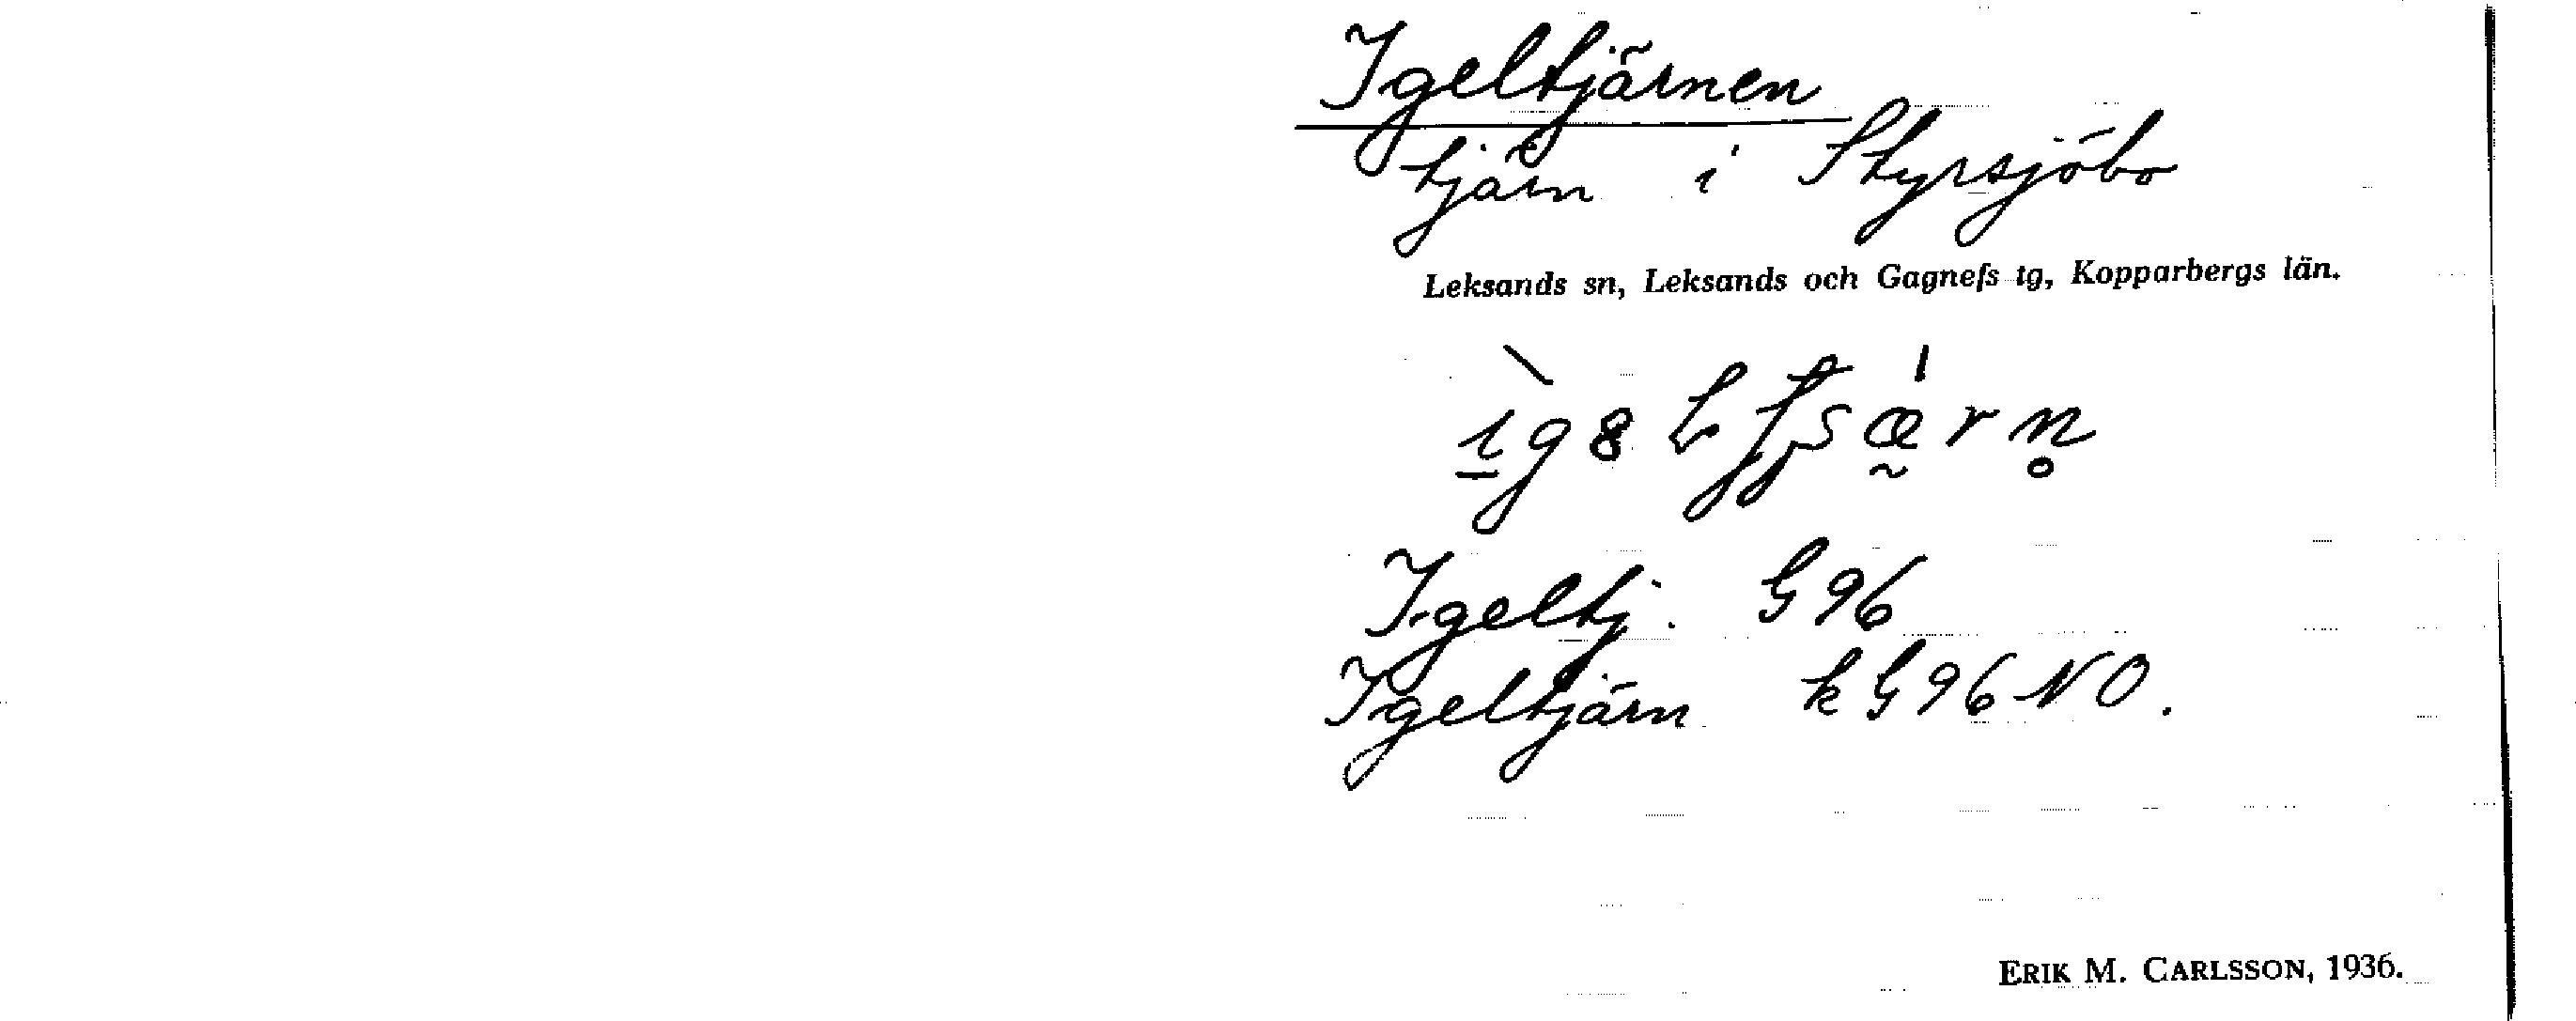 Igeltjärnen
tjärn i Styrsjöbo
Leksands sn, Leksands och Gagnefs tg, Kopparbergs län.
Igeltj. G 96
Igeltjärn k G 96 NO.
ERIK M. CARLSSON, 1936.